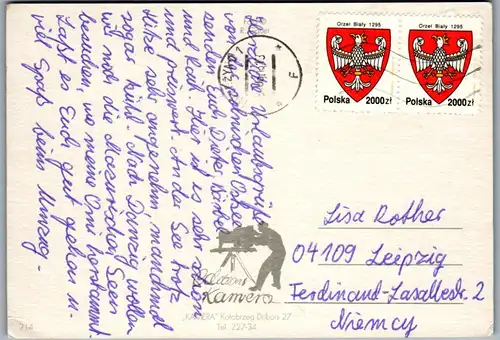 Herzliche Urlaubsgrüße
von der polnischen Ostsee
senden Euch Dieter, Bärbel
und Kai. Hier ist es sehr schön
und preiswert. An der See trotz
Hitze sehr angenehm, manchmal
sogar kühl. Nach Danzig wollen
wir noch die Masurischen Seen
besuchen, wo meine Omi herstammt.
Laßt es Euch gut gehen u.
viel Spaß beim Umzug.
Orzeł Biały 1295
Polska 2000 zł
Orzeł Biały 1295
Polska 2000 zł
Lisa Rother
04109 Leipzig
Ferdinand-Lasallestr. 2
Niemcy
Kamera
„KAMERA" Kołobrzeg Dubois 27
Tel. 227-34
214